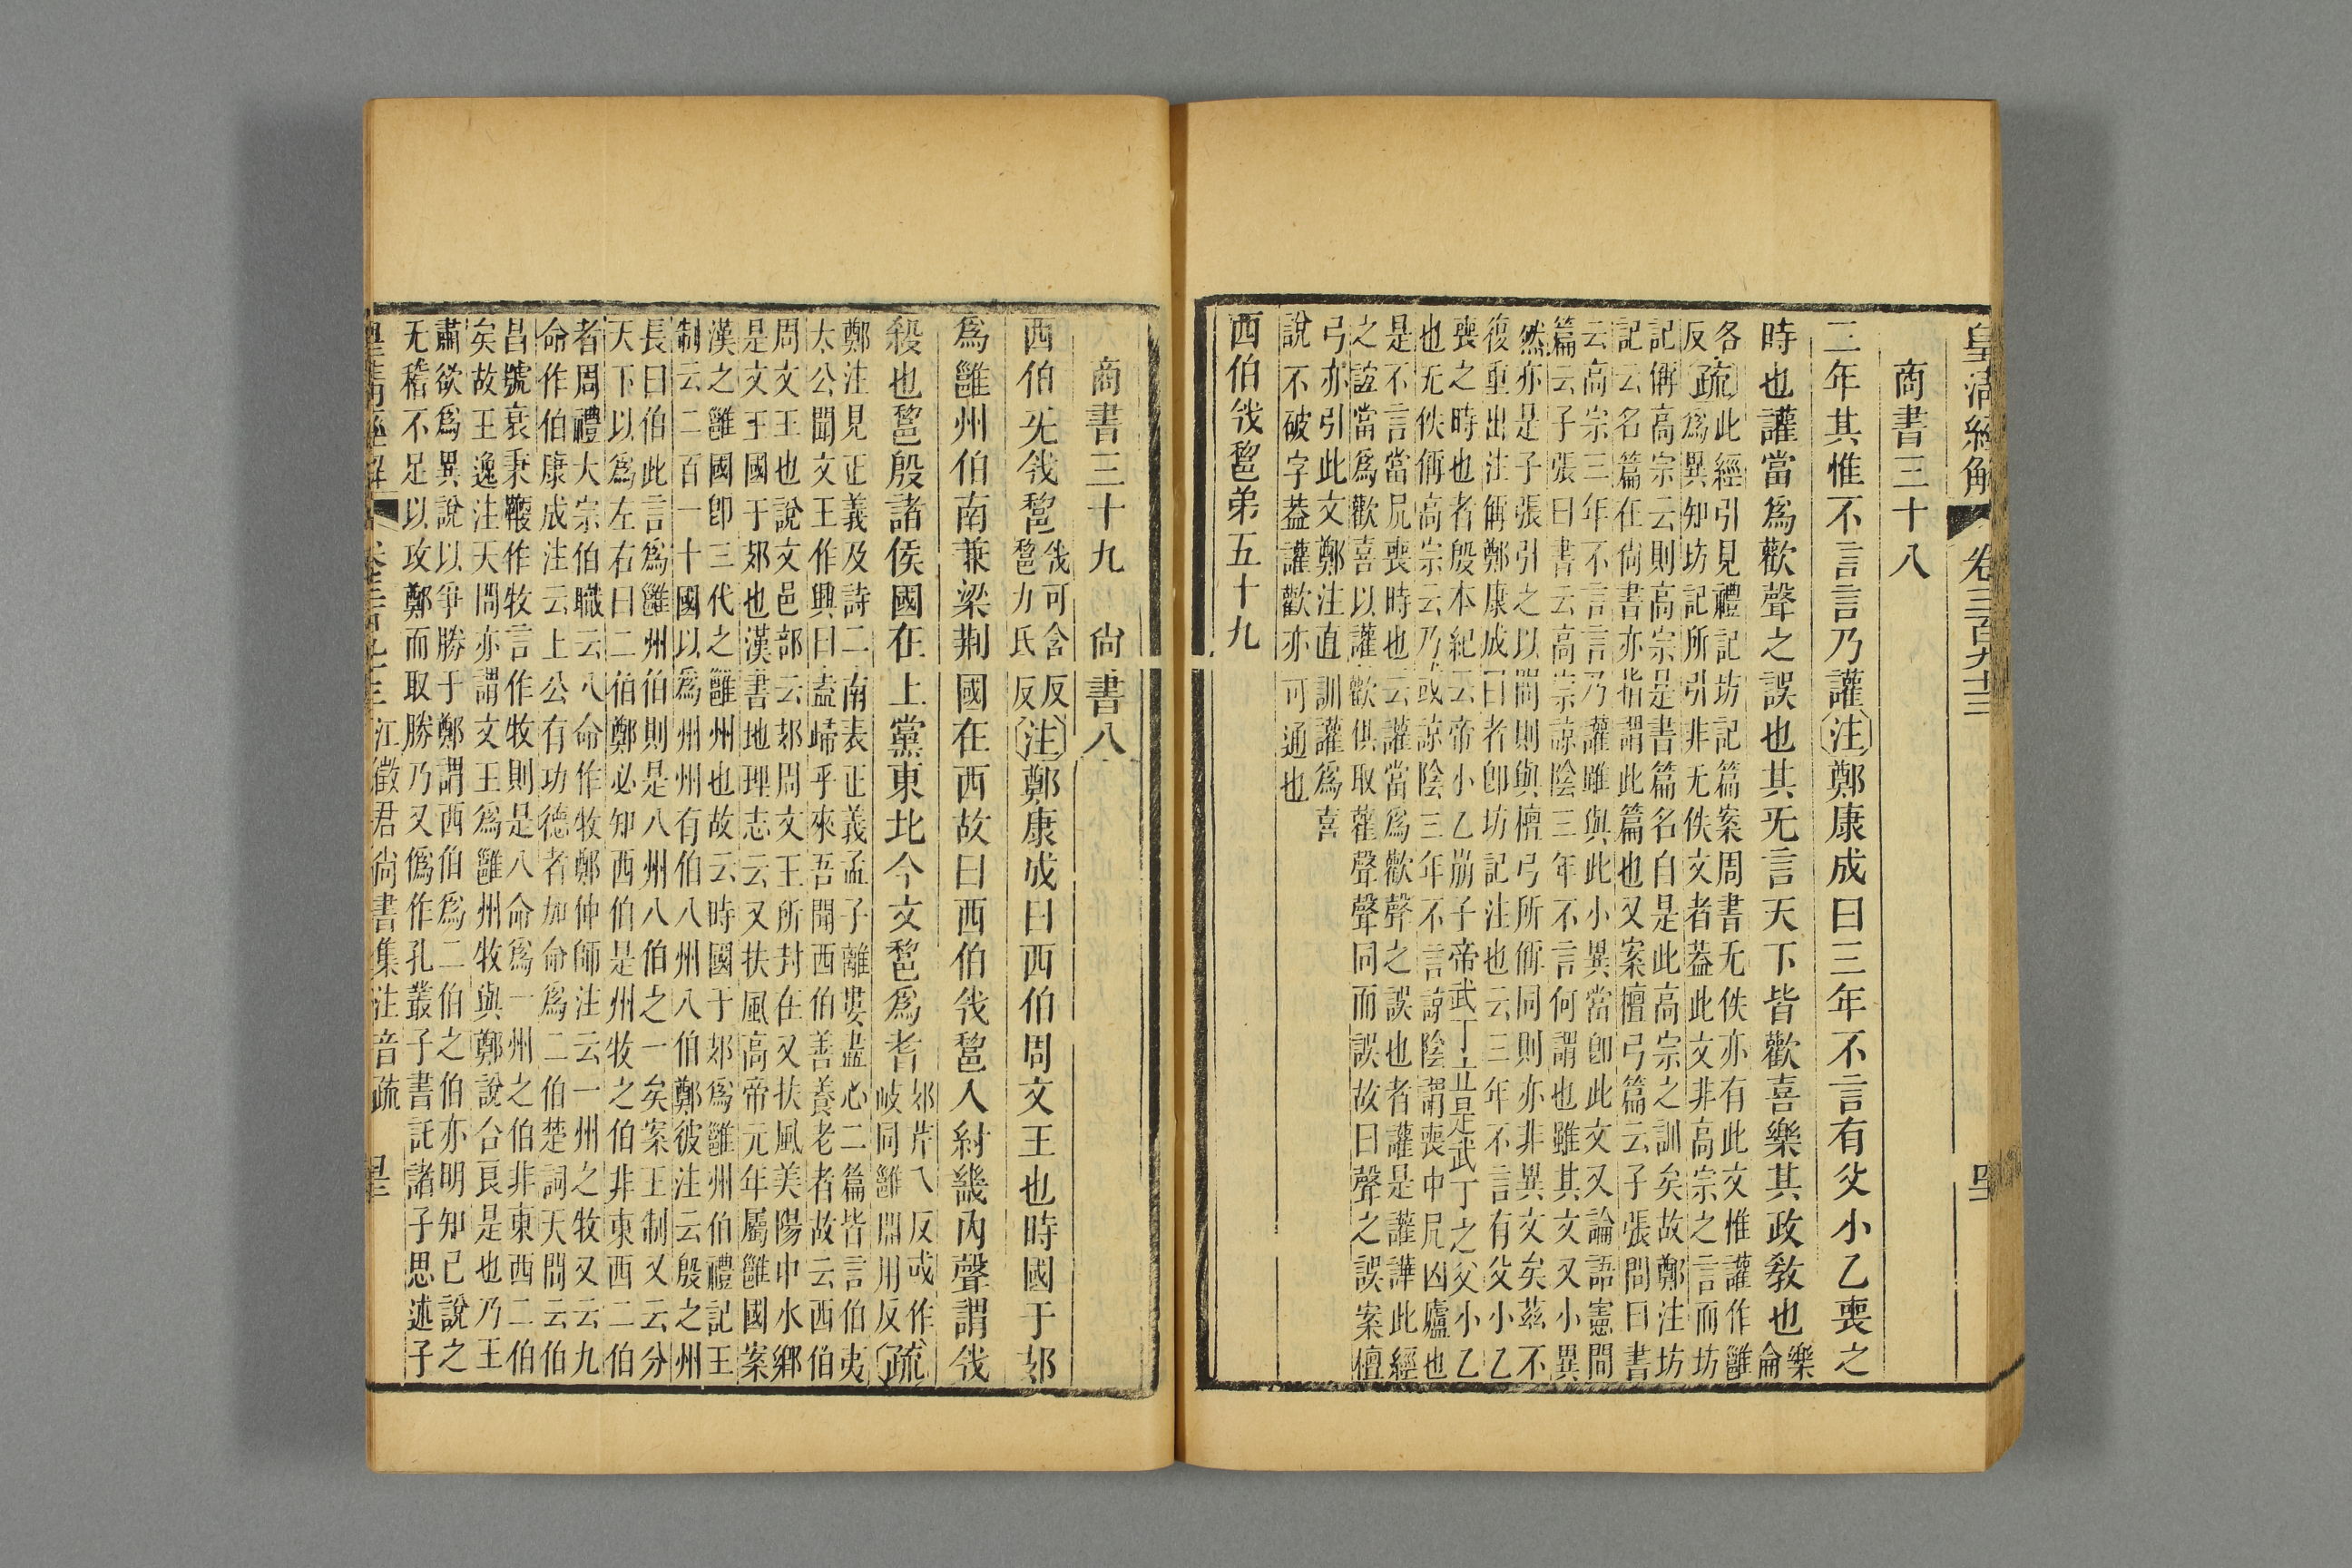 皇淸經解 卷三百九十三
商書三十八
三年其惟不言言乃讙〔注〕鄭康成曰三年不言有父小乙喪之
時也讙當爲歡聲之誤也其旡言天下皆歡喜樂其政敎也樂侖
各反〔疏〕此經引見禮記坊記篇案周書无佚亦有此文惟讙作雝
爲異知坊記所引非无佚文者葢此文非高宗之言而坊
記偁高宗云則高宗是書篇名自是此高宗之訓矣故鄭注坊
記云名篇在尙書亦指謂此篇也又案檀弓篇云子張問曰書
云高宗三年不言言乃讙雖與此小異當卽此文又論語憲問
篇云子張曰書云高宗諒陰三年不言何謂也雖其文又小異
然亦是子張引之以問則與檀弓所偁同則亦非異文矣茲不
復重出注偁鄭康成曰者卽坊記注也云三年不言有父小乙
喪之時也者殷本紀云帝小乙崩子帝武丁立是武丁之父小乙
也无佚偁高宗云乃或諒陰三年不言諒陰謂喪中凥凶廬也
是不言當凥喪時也云讙當爲歡聲之誤也者讙是讙譁此經
之誼當爲歡喜以讙歡俱取雚聲聲同而誤故曰聲之誤案檀
弓亦引此文鄭注直訓讙爲喜
說不破字葢讙歡亦可通也
西伯𢦏𨛫弟五十九
商書三十九 尙書八
西伯旡𢦏𨛫𢦏可含反𨛫力氏反〔注〕鄭康成曰西伯周文王也時國于郂
爲雝州伯南兼梁荆國在西故曰西伯𢦏𨛫人紂畿內聲謂𢦏
殺也𨛫殷諸侯國在上黨東北今文𨛫爲耆郂芹反或作岐同雝用反〔疏〕
鄭注見正義及詩二南表正義孟子離婁盡心二篇皆言伯夷
太公聞文王作興曰盍歸乎來吾聞西伯善養老者故云西伯
周文王也說文邑部云郂周文王所封在又扶風美陽中水鄉
是文王國于郂也漢書地理志云又扶風高帝元年屬雝國案
漢之雝國卽三代之雝州也故云時國于郂爲雝州伯禮記王
制云二百一十國以爲州州有伯八州八伯鄭彼注云殷之州
長曰伯此言爲雝州伯則是八州八伯之一矣案王制又云分
天下以爲左右曰二伯鄭必知西伯是州牧之伯非東西二伯
者周禮大宗伯職云八命作牧鄭仲師注云一州之牧又云九
命作伯康成注云上公有功德者加命爲二伯楚詞天問云伯
昌號衰秉鞭作牧言作牧則是八命爲一州之伯非東西二伯
矣故王逸注天問亦謂文王爲雝州牧與鄭說合㫐是也乃王
肅欲爲異說以爭勝于鄭謂西伯爲二伯之伯亦明知己說之
无稽不足以攻鄭而取勝乃又僞作孔叢子書託諸子思述子
皇淸經解 卷三百九十三 江徵君尙書集注音疏